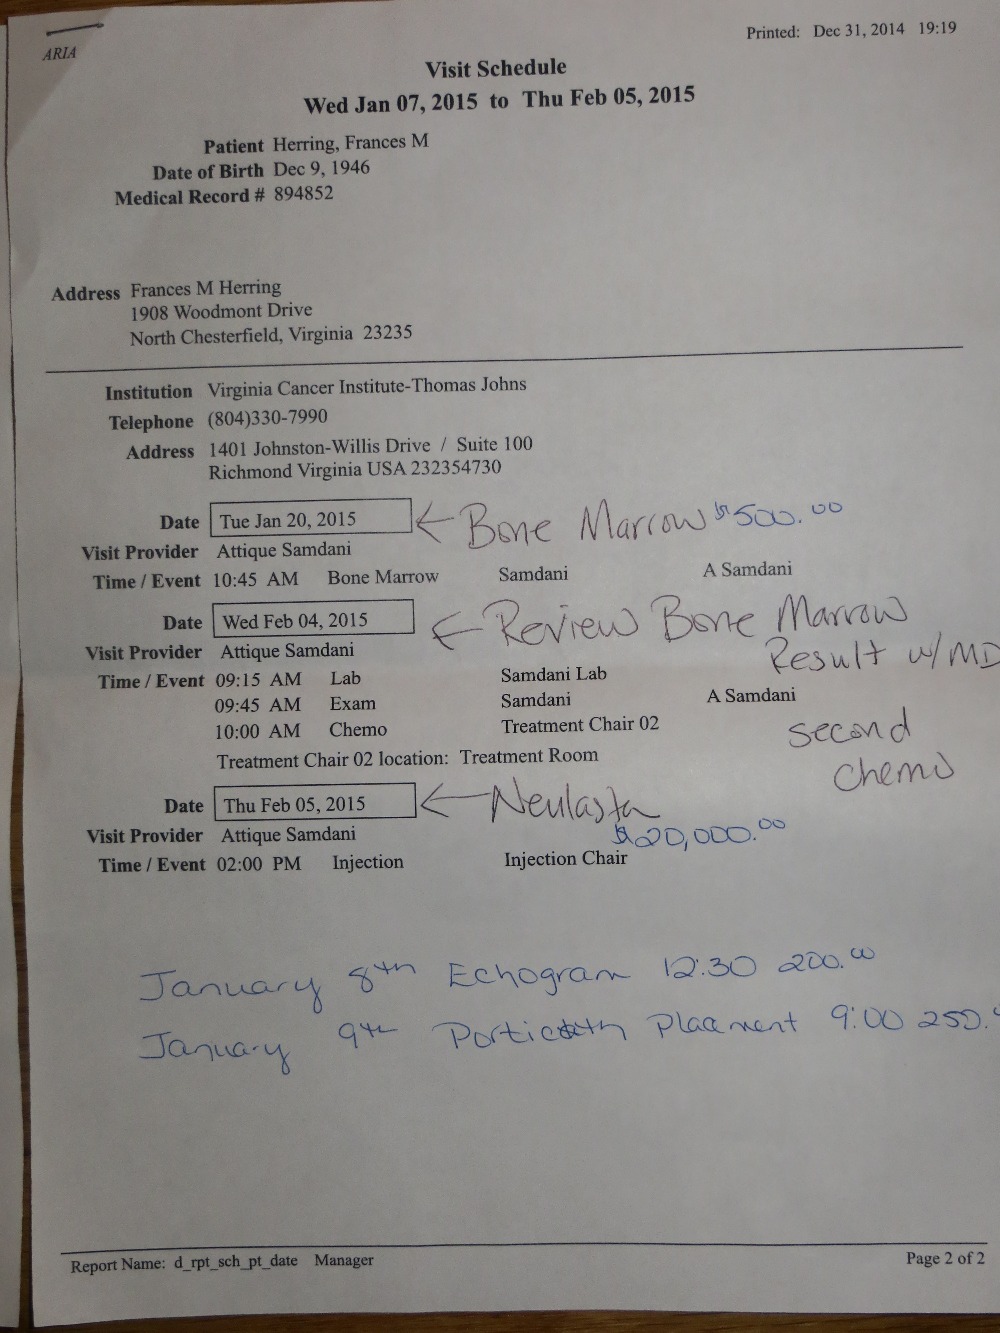 ARIA
Printed: Dec 31, 2014 19:19
Visit Schedule
Wed Jan 07, 2015 to Thu Feb 05, 2015
Patient Herring, Frances M
Date of Birth Dec 9, 1946
Medical Record # 894852
Address Frances M Herring
1908 Woodmont Drive
North Chesterfield, Virginia 23235
Institution Virginia Cancer Institute-Thomas Johns
Telephone (804)330-7990
Address 1401 Johnston-Willis Drive / Suite 100
Richmond Virginia USA 232354730
Date Tue Jan 20, 2015 ← Bone Marrow $500.00
Visit Provider Attique Samdani
Time / Event 10:45 AM Bone Marrow Samdani A Samdani
Date Wed Feb 04, 2015 ← Review Bone Marrow
Result w/ MD
Visit Provider Attique Samdani
Time / Event 09:15 AM Lab Samdani Lab
09:45 AM Exam Samdani A Samdani
10:00 AM Chemo Treatment Chair 02
second
chemo
Treatment Chair 02 location: Treatment Room
Date Thu Feb 05, 2015 ← Neulasta
$20,000.00
Visit Provider Attique Samdani
Time / Event 02:00 PM Injection Injection Chair
January 8th Echogram 12:30 200.00
January 9th Placment 9:00 250.
Report Name: d_rpt_sch_pt_date Manager
Page 2 of 2